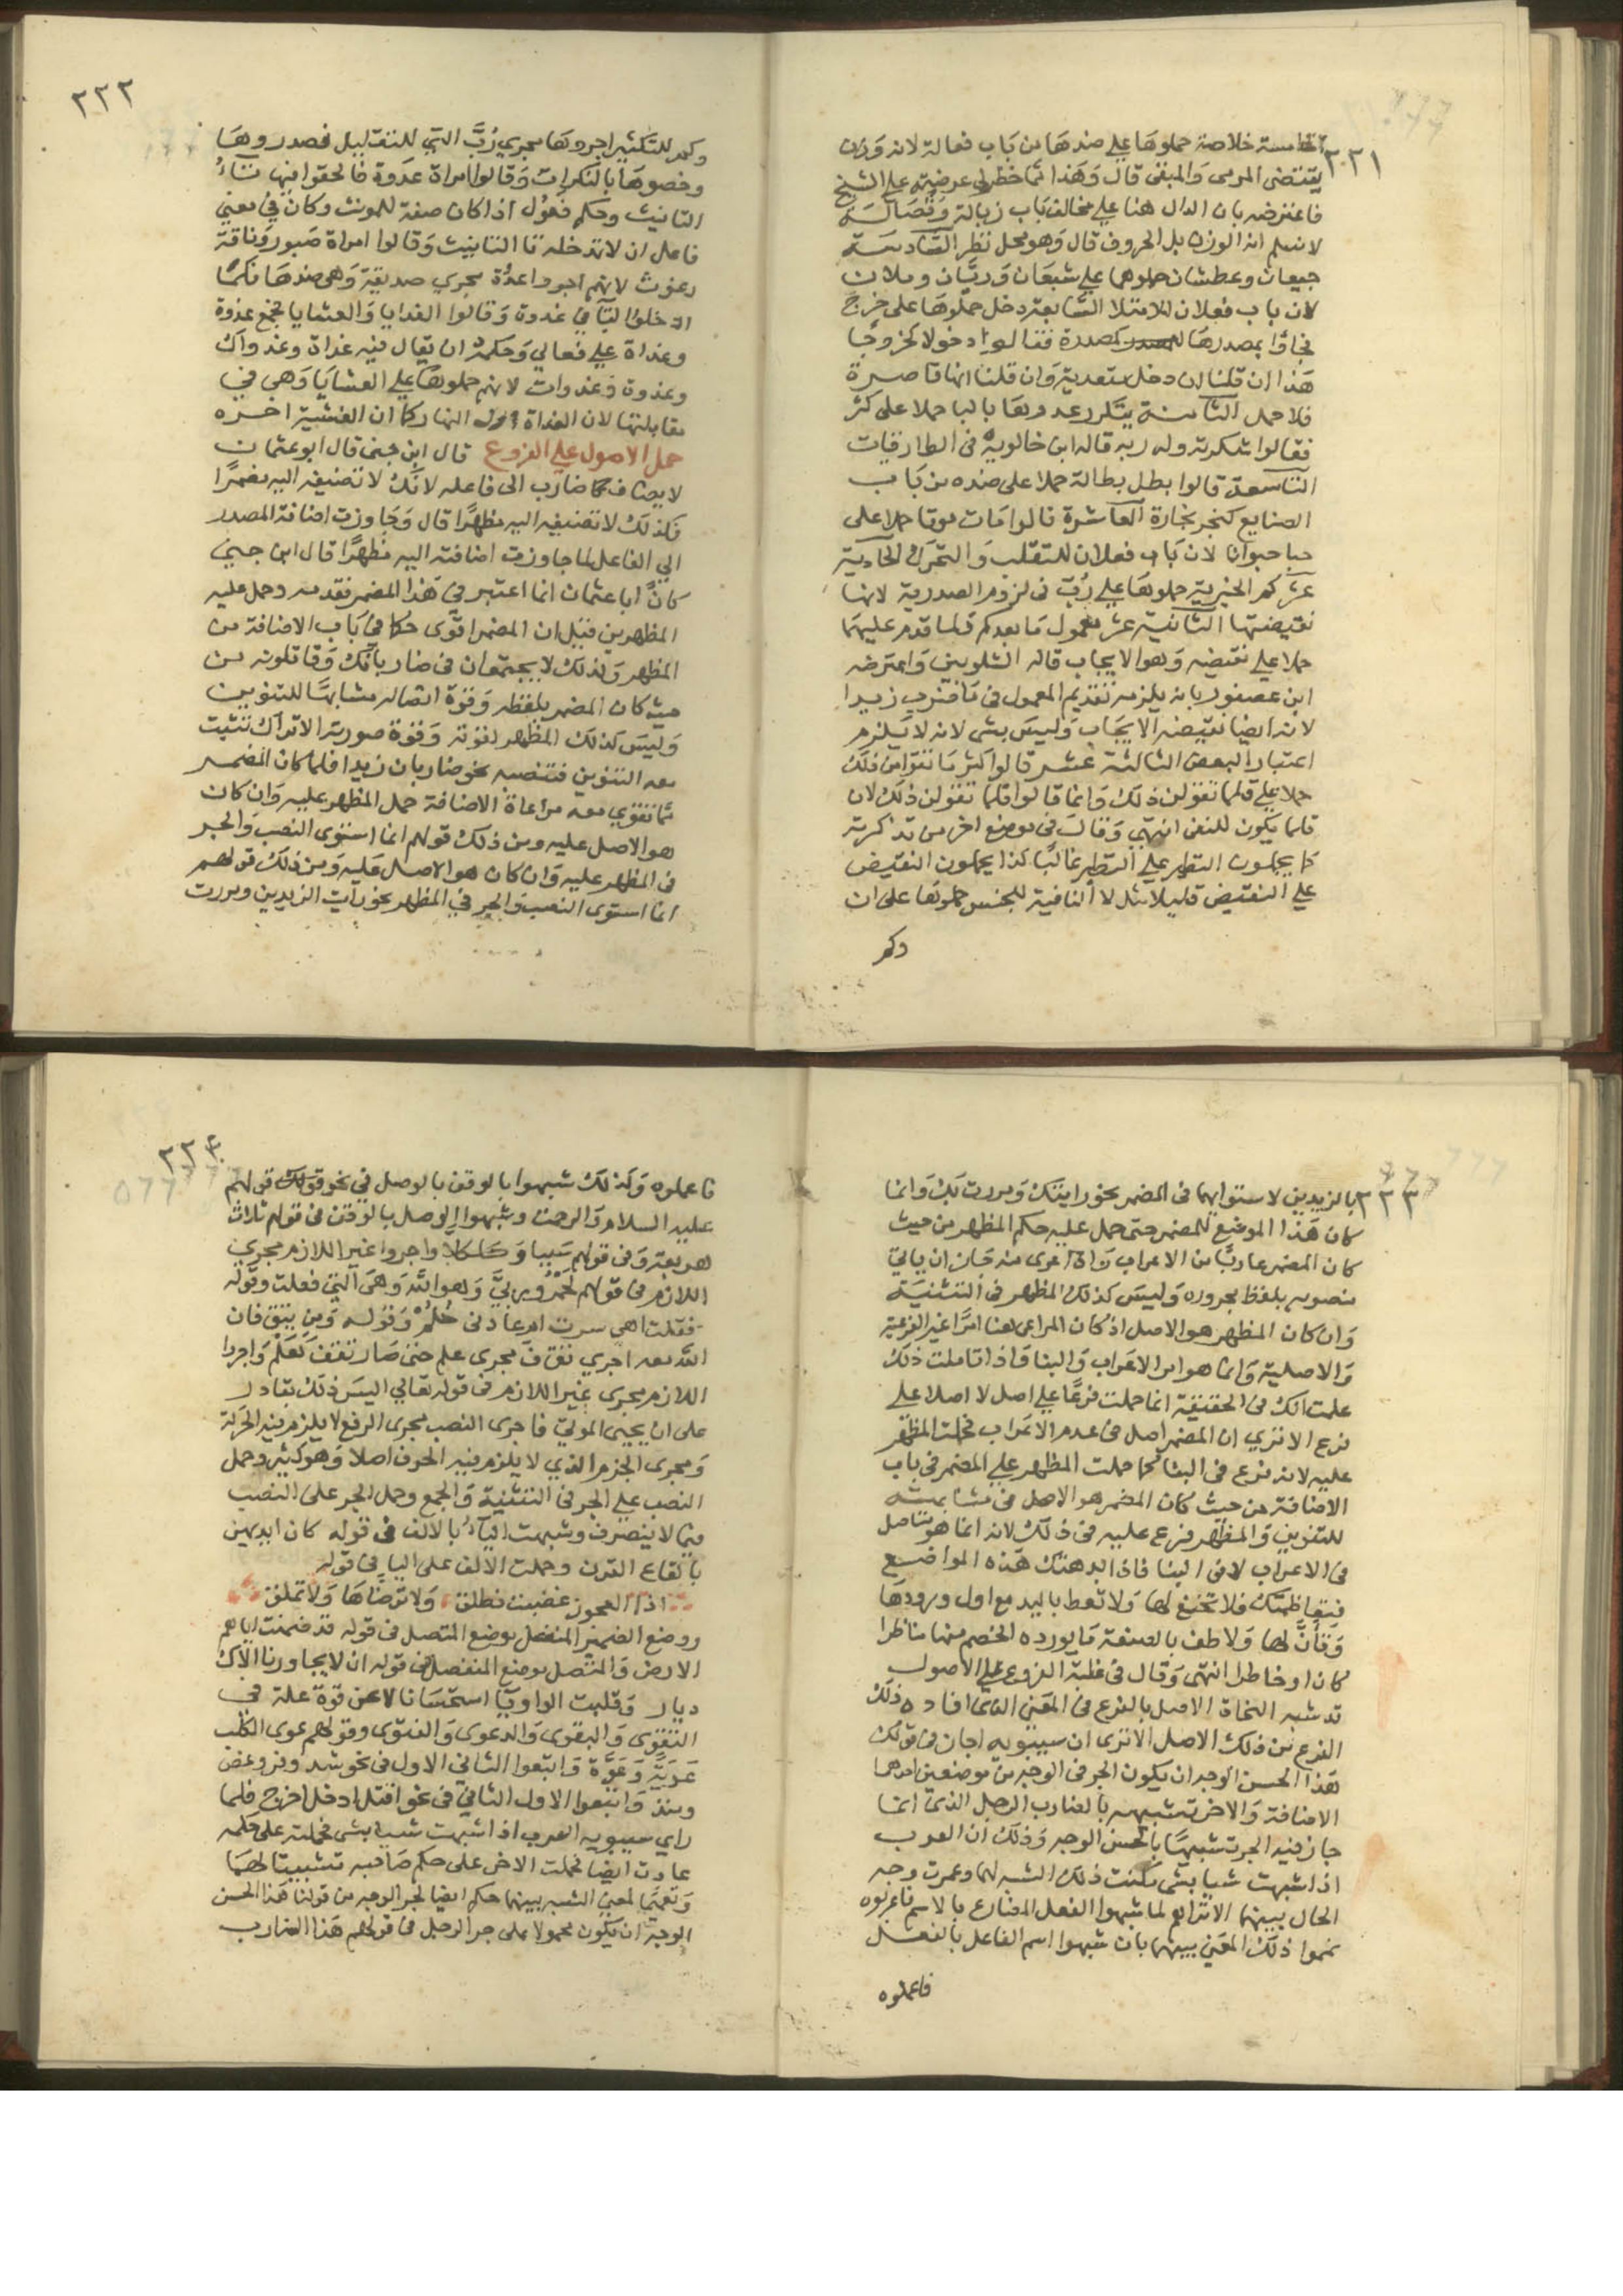 ٢٢١
الخامسة خلاصة حملوها علي ضدها من باب فعالة لانه وزن
يقتضي المرمى والمبقى قال وهذا مما خطر لي عرضته علي الشيخ
فاعترضه بان الدال هنا علي مخالف باب زبالة وفضالة
لا نسلم انه الوزن بل الحروف قال وهو محل نظر السادسة
جيعان وعطشان حملوهما علي شبعان وريان وملان
لان باب فعلان للامتلا السابعة دخل حملوها على خرج
فجاؤا بمصدرها كمصدره فقالوا دخولا كخروجا
هذا ان قلنا ان دخل متعدية وان قلنا انها قاصرة
فلا حمل الثامنة شكر عدوها بالبا حملا على كفر
فقالوا شكرته وله وبه قاله ابن خالويه في الطارقيات
التاسعة قالوا بطل بطالة حملا على ضده من باب
الصنايع كنجر نجارة العاشرة قالوا مات موتا حملا على
حيا حيوانا لان باب فعلان للتقلب والتحرك الحادية
عشر كم الخبرية حملوها علي رب في لزوم الصدرية لانها
نقيضتها الثانية عشر معمول ما بعد لم ولما قدم عليهما
حملا علي نقيضه وهو الايجاب قاله الشلوبين واعترضه
ابن عصفور بانه يلزمه تقديم المعمول في ما ضرب زيدا
لانه ايضا نقيضه الايجاب وليس بشى لانه لا يلزم
اعتبار البعض الثالثة عشر قالوا كثر ما تقولن ذلك
حملا علي قلما تقولن ذلك وانما قالوا قلما تقولن ذلك لان
قلما يكون للنفى انتهى وقال في موضع اخر من تذكرته
كما يحملون النظير علي النظير غالبا كذا يحملون النقيض
علي النقيض قليلا مثل لا النافية للجنس حملوها على ان
وكم
٢٢٢
وكم للتكثير اجروها مجري رب التي للتقليل فصدروها
وخصوها بالنكرات وقالوا امراة عدوة فالحقوا فيها تاء
التانيث وحكم فعول اذا كان صفة للمونث وكان في معني
فاعل ان لا تدخله تا التانيث وقالوا امراة صبور وناقة
رغوث لانهم اجروا عدوة مجري صديقة وهي ضدها فكما
ادخلوا التا في عدوة وقالوا الغدايا والعشايا فجمع غدوة
وغداة علي فعالي وحكمه ان يقال فيه غداة وغدوات
وغدوة وغدوات لانهم حملوها علي العشايا وهي في
مقابلتها لان الغداة اول النهار كما ان العشية اخره
حمل الاصول علي الفروع قال ابن جنى قال ابو عثمان
لا يضاف ضارب الى فاعله لانك لا تضيفه اليه مضمرا
فكذلك لا تضيفه اليه مظهرا قال وجاوزت اضافة المصدر
الي الفاعل لما جاوزت اضافته اليه مظهرا قال ابن جني
كان ابا عثمان انما اعتبر في هذا المضمر فقدمه وحمل عليه
المظهر من قبل ان المضمر اقوى حكما في باب الاضافة من
المظهر وذلك لا يجتمعان في ضاربانك وقاتلونه من
حيث كان المضمر بلفظه وقوة اتصاله مشابها للتنوين
وليس كذلك المظهر لقوته وقوة صورته الا تراك تثبت
معه التنوين فتنصبه نحو ضاربان زيدا فلما كان المضمر
مما تقوي معه مراعاة الاضافة حمل المظهر عليه وان كان
هو الاصل عليه ومن ذلك قولهم انما استوى النصب والجر
في المظهر عليه وان كان هو الاصل عليه ومن ذلك قولهم
انما استوى النصب والجر في المظهر نحو رايت الزيدين ومررت
٢٢٣
بالزيدين لاستوايهما في المضمر نحو رايتك ومررت بك وانما
كان هذا الموضع للمضمر حتى حمل عليه حكم المظهر من حيث
كان المضمر عاريا من الاعراب واذا عرى منه جاز ان ياتي
منصوبه بلفظ مجروره وليس كذلك المظهر في التثنية
وان كان المظهر هو الاصل اذ كان المراعى هنا امرا غير الفرعية
والاصلية وانما هو امر الاعراب والبنا واذا تاملت ذلك
علمت انك في الحقيقة انما حملت فرعا علي اصل لا اصلا علي
فرع الا تري ان المضمر اصل في عدم الاعراب فحملت المظهر
عليه لانه فرع في البنا كما حملت المظهر علي المضمر في باب
الاضافة من حيث كان المضمر هو الاصل في مشابهته
للتنوين والمظهر فرع عليه في ذلك لانه انما هو متاصل
في الاعراب لا في البنا فاذا بدهتك هذه المواضع
فتعاظمتك فلا تخنع لها ولا تعط باليد مع اول ورودها
وتأن لها ولاطف بالصنعة ما يورده الخصم منها مناظرا
كان او خاطرا انتهى وقال في غلبة الفروع علي الاصول
قد شبه النحاة الاصل بالفرع في المعنى الذي افاده ذلك
الفرع من ذلك الاصل الا ترى ان سيبويه اجاز في قولك
هذا الحسن الوجه ان يكون الجر في الوجه من موضعين احدهما
الاضافة والاخر تشبيهه بالضارب الرجل الذي انما
جاز فيه الجر تشبيها بالحسن الوجه وذلك ان العرب
اذا شبهت شيا بشى مكنت ذلك الشبه لهما وعمرت وجه
الحال بينهما الا تراهم لما شبهوا الفعل المضارع بالاسم فاعربوه
تمموا ذلك المعنى بينهما بان شبهوا اسم الفاعل بالفعل
فاعملوه
٢٢٤
فاعملوه وكذلك شبهوا الوقف بالوصل في نحو قولهم
عليه السلام والرحمت وشبهوا الوصل بالوقف في قولهم ثلاث
هربعة وفي قولهم سبسبا وكلكلا واجروا غير اللازم مجري
اللازم في قولهم لحمر وريا وهو الله وهي التي فعلت وقوله
فقلت اهي سرت ام عادني حلم وقوله ومن يتق فان
الله معه اجري تقف مجرى علم حتى صار تقف كعلم واجروا
اللازم مجرى غير اللازم في قوله تعالي اليس ذلك بقادر
على ان يحيي الموتي فاجرى النصب مجرى الرفع لا يلزم فيه الحركة
ومجرى الجزم الذي لا يلزم فيه الحرف اصلا وهو كثير وحمل
النصب علي الجر في التثنية والجمع وحمل الجر على النصب
فيما لا ينصرف وشبهت الياء بالالف في قوله كان ايديهن
بالقاع القرق وحملت الالف على اليا في قوله
اذا العجوز غضبت فطلق ولا ترضاها ولا تملق
ووضع الضمير المنفصل موضع المتصل في قوله قد ضمنت اياهم
الارض والمتصل موضع المنفصل في قوله ان لا يجاورنا الاك
ديار وقلبت الواو يا استحسانا لا عن قوة علة في
التقوى والبقوى والدعوى والفتوى وقولهم عوى الكلب
عوية وعوة واتبعوا الثاني الاول في نحو شد وفر وعض
ومنذ واتبعوا الاول الثاني في نحو اقتل ادخل اخرج فلما
راي سيبويه العرب اذا شبهت شيا بشى فحملته على حكمه
عادت ايضا فحملت الاخر على حكم صاحبه تثبيتا لهما
وتتميما لمعنى الشبه بينهما حكم ايضا لجر الوجه من قولنا هذا الحسن
الوجه ان يكون محمولا على جر الرجل في قولهم هذا الضارب